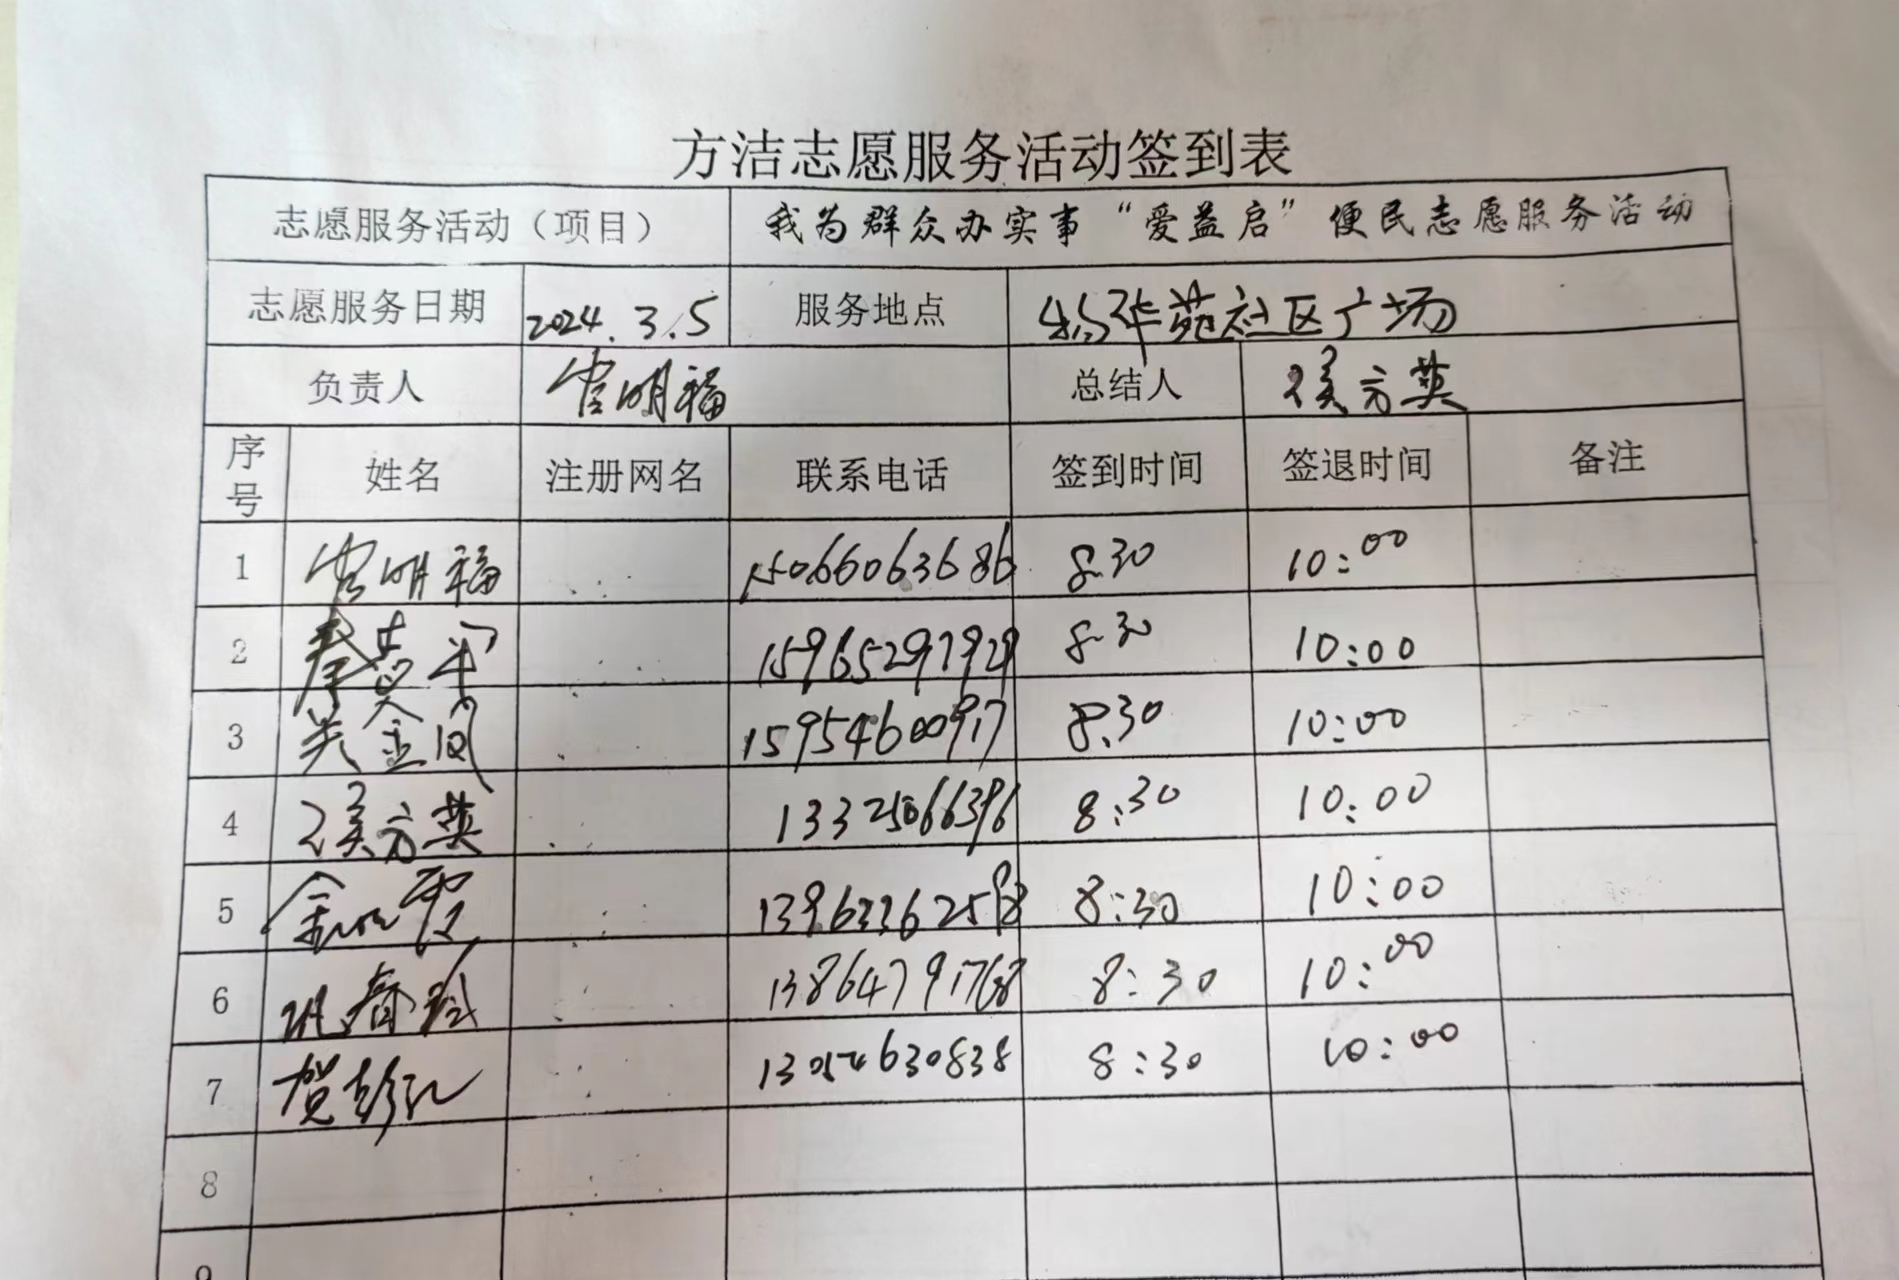 方洁志愿服务活动签到表
志愿服务活动（项目） 我为群众办实事“爱益启”便民志愿服务活动
志愿服务日期 2024.3.5 服务地点 杨华苑社区广场
负责人 官明福 总结人 侯方英
序号 姓名 注册网名 联系电话 签到时间 签退时间 备注
1 官明福 15066063686 8:30 10:00
2 15965297929 8:30 10:00
3 关金凤 15954600917 8:30 10:00
4 侯方英 13325066396 8:30 10:00
5 13963362598 8:30 10:00
6 13864791768 8:30 10:00
7 贺彭红 13054630838 8:30 10:00
8
9